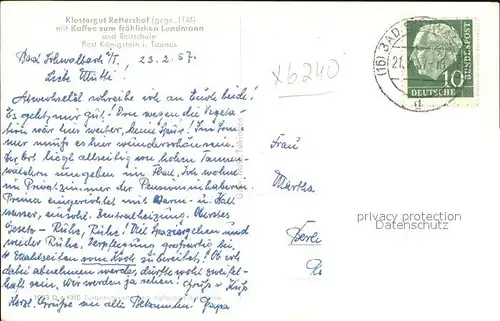 Klostergut Rettershof (gegr. 1146)
mit Kaffee zum fröhlichen Landmann
und Reitschule
Post Königstein i. Taunus
Bad Schwalbach i/T, 23.2.57.
Liebe Mutti!
Abwechselnd schreibe ich an Euch beide!
Es geht mir gut! Von wegen die Vegeta-
tion wär hier weiter, keine Spur! Im Som-
mer muss es hier wunderschön sein.
Der Ort liegt allseitig von hohen Tannen-
wäldern umgeben im Thal. Ich wohne
im Privatzimmer der Pensionsinhaberin.
Prima eingerichtet mit Warm- u. Kalt
wasser, einschl. Zentralheizung. Oberstes
Gesetz - Ruhe, Ruhe! Mit Spazierengehen und
wieder Ruhe. Verpflegung großartig bei
4 Mahlzeiten vom Koch zubereitet! Ob ich
dabei abnehmen werde, dürfte wohl zweifel-
haft sein. Wir werden ja sehen! Gruß u. Kuß
Herzl. Grüsse an alle Bekannten! Papa
x6240
(16) BAD
21.
d
DEUTSCHE
BUNDESPOST
10
Frau
Martha
Berlin
privacy protection
Datenschutz